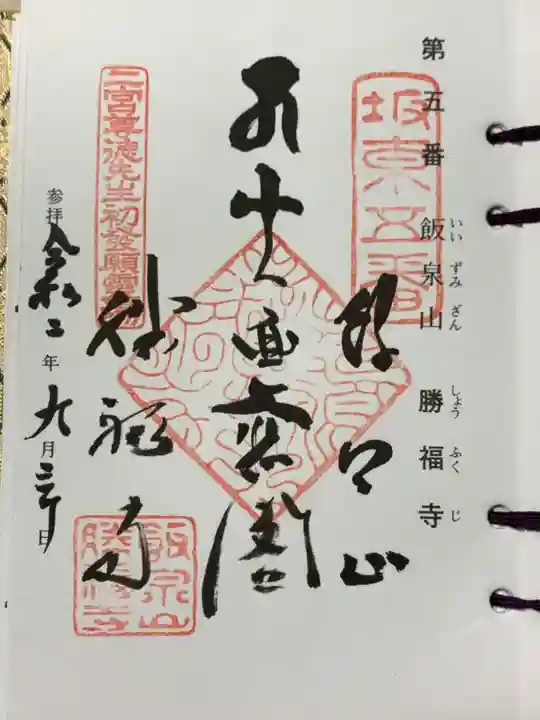 第五番 飯泉山 勝福寺
いいずみざん しょうふくじ
坂東五番
飯泉山
十一面大悲閣
勝福寺
二宮尊徳先生初発願霊場
飯泉山
勝福寺
参拝 令和二年九月 日